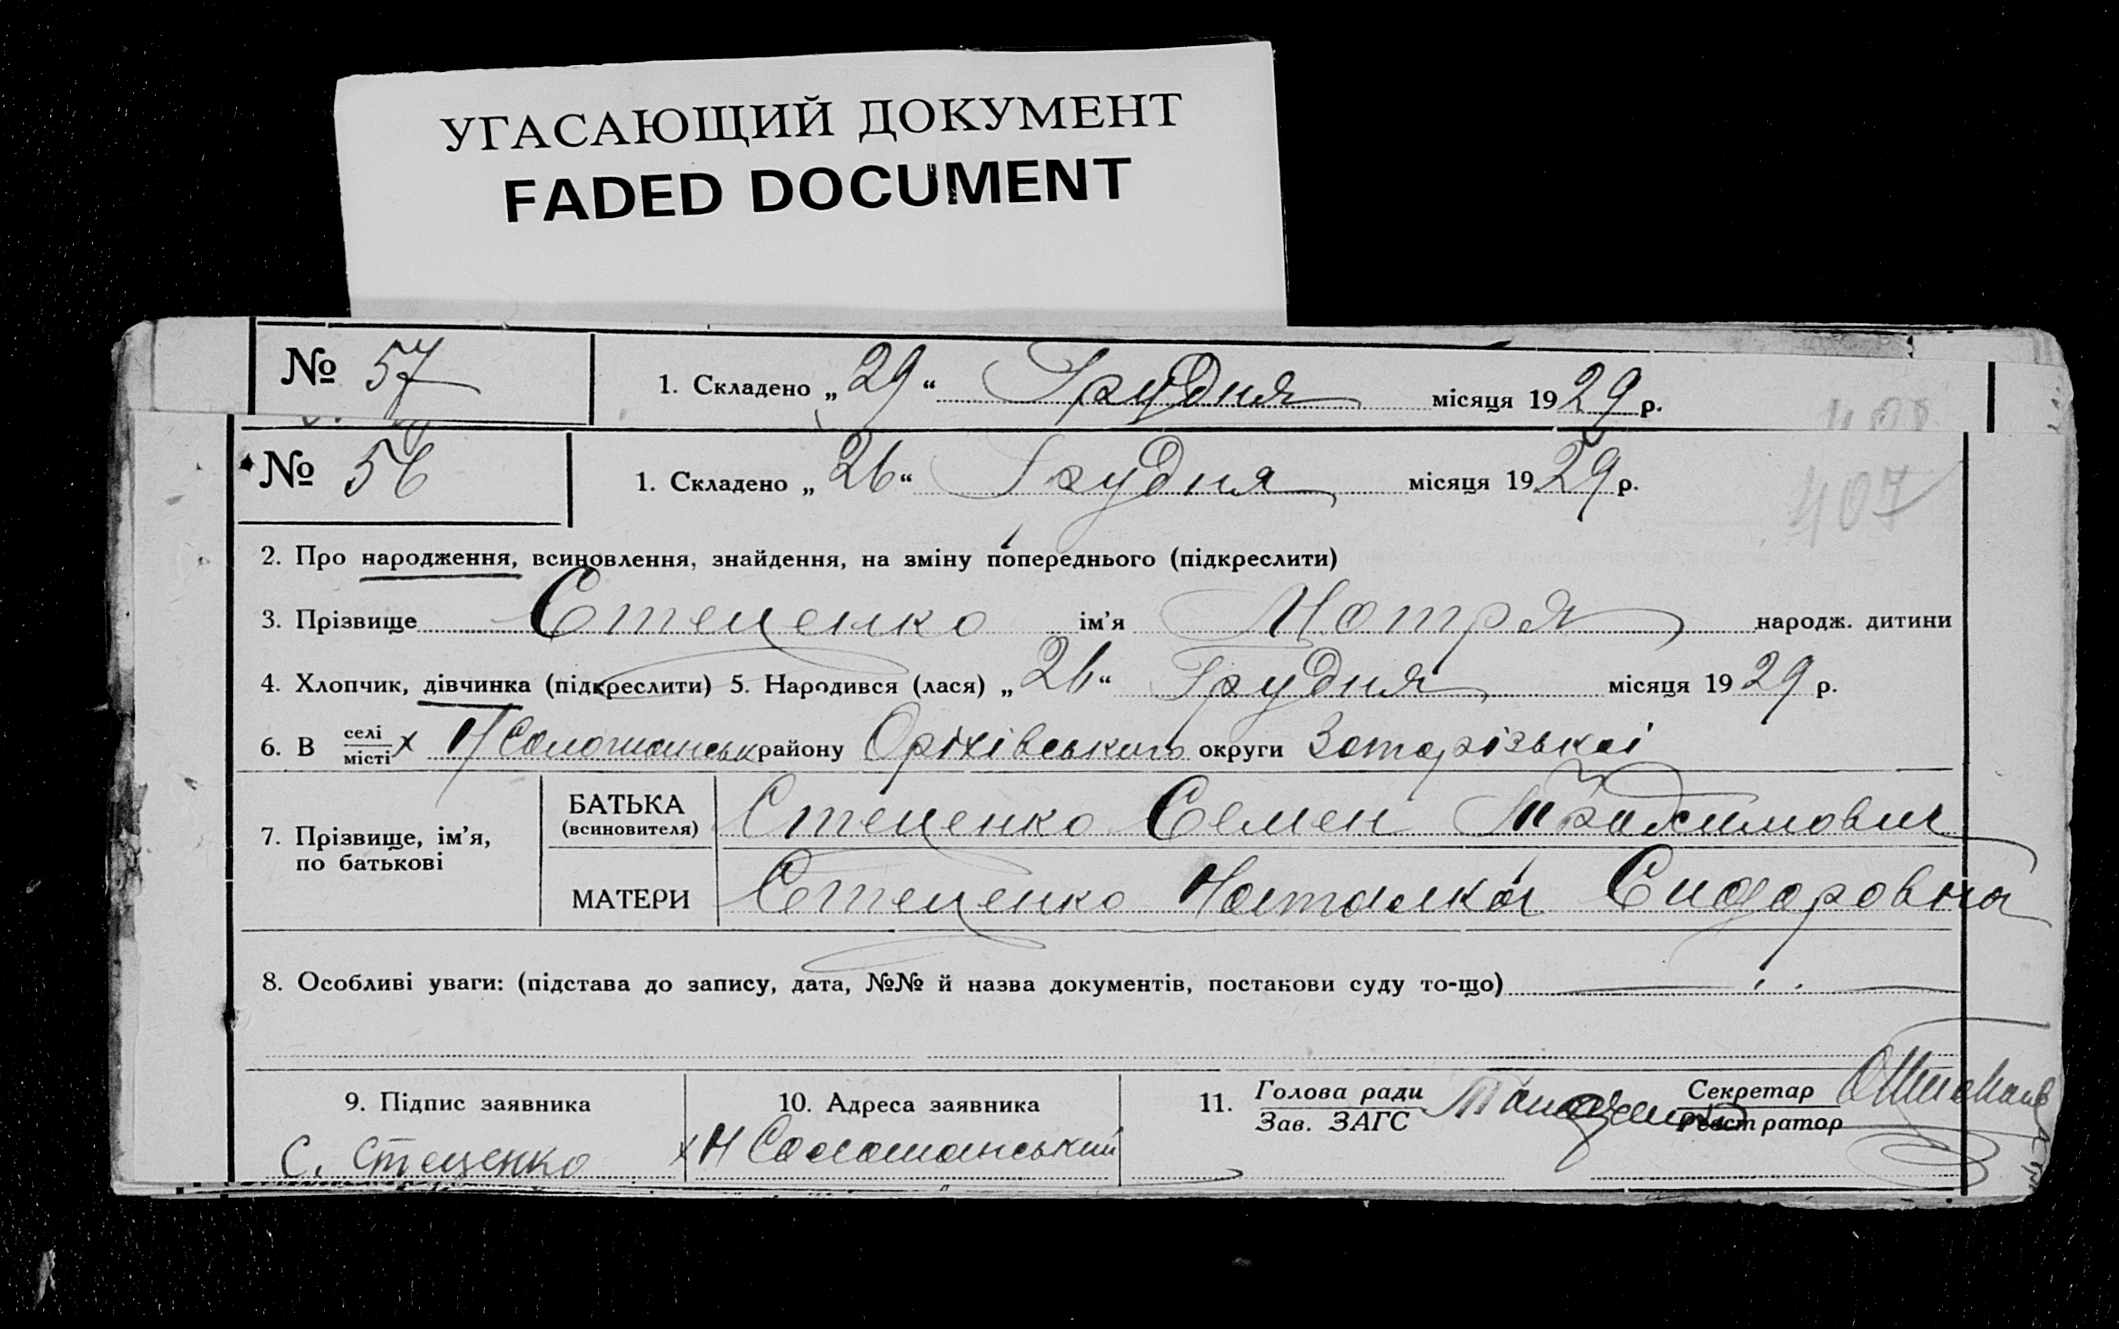 УГАСАЮЩИЙ ДОКУМЕНТ
FADED DOCUMENT
№ 57 1. Складено „29“ Грудня місяця 1929 р.
408
№ 56 1. Складено „26“ Грудня місяця 1929 р.
407
2. Про народження, всиновлення, знайдення, на зміну попереднього (підкреслити)
3. Прізвище Стеценко ім'я Мотря народж. дитини
4. Хлопчик, дівчинка (підкреслити) 5. Народився (лася) „26“ Грудня місяця 1929 р.
6. В селі/місті х Н Солошанськ району Оріхівського округи Запорізької
7. Прізвище, ім'я, по батькові
БАТЬКА (всиновителя) Стеценко Семен Трохимович
МАТЕРИ Стеценко Наталка Сидоровна
8. Особливі уваги: (підстава до запису, дата, №№ й назва документів, постакови суду то-що)
9. Підпис заявника 10. Адреса заявника 11. Голова ради Секретар
Зав. ЗАГС Реєстратор
С. Стеценко х Н Солошанський